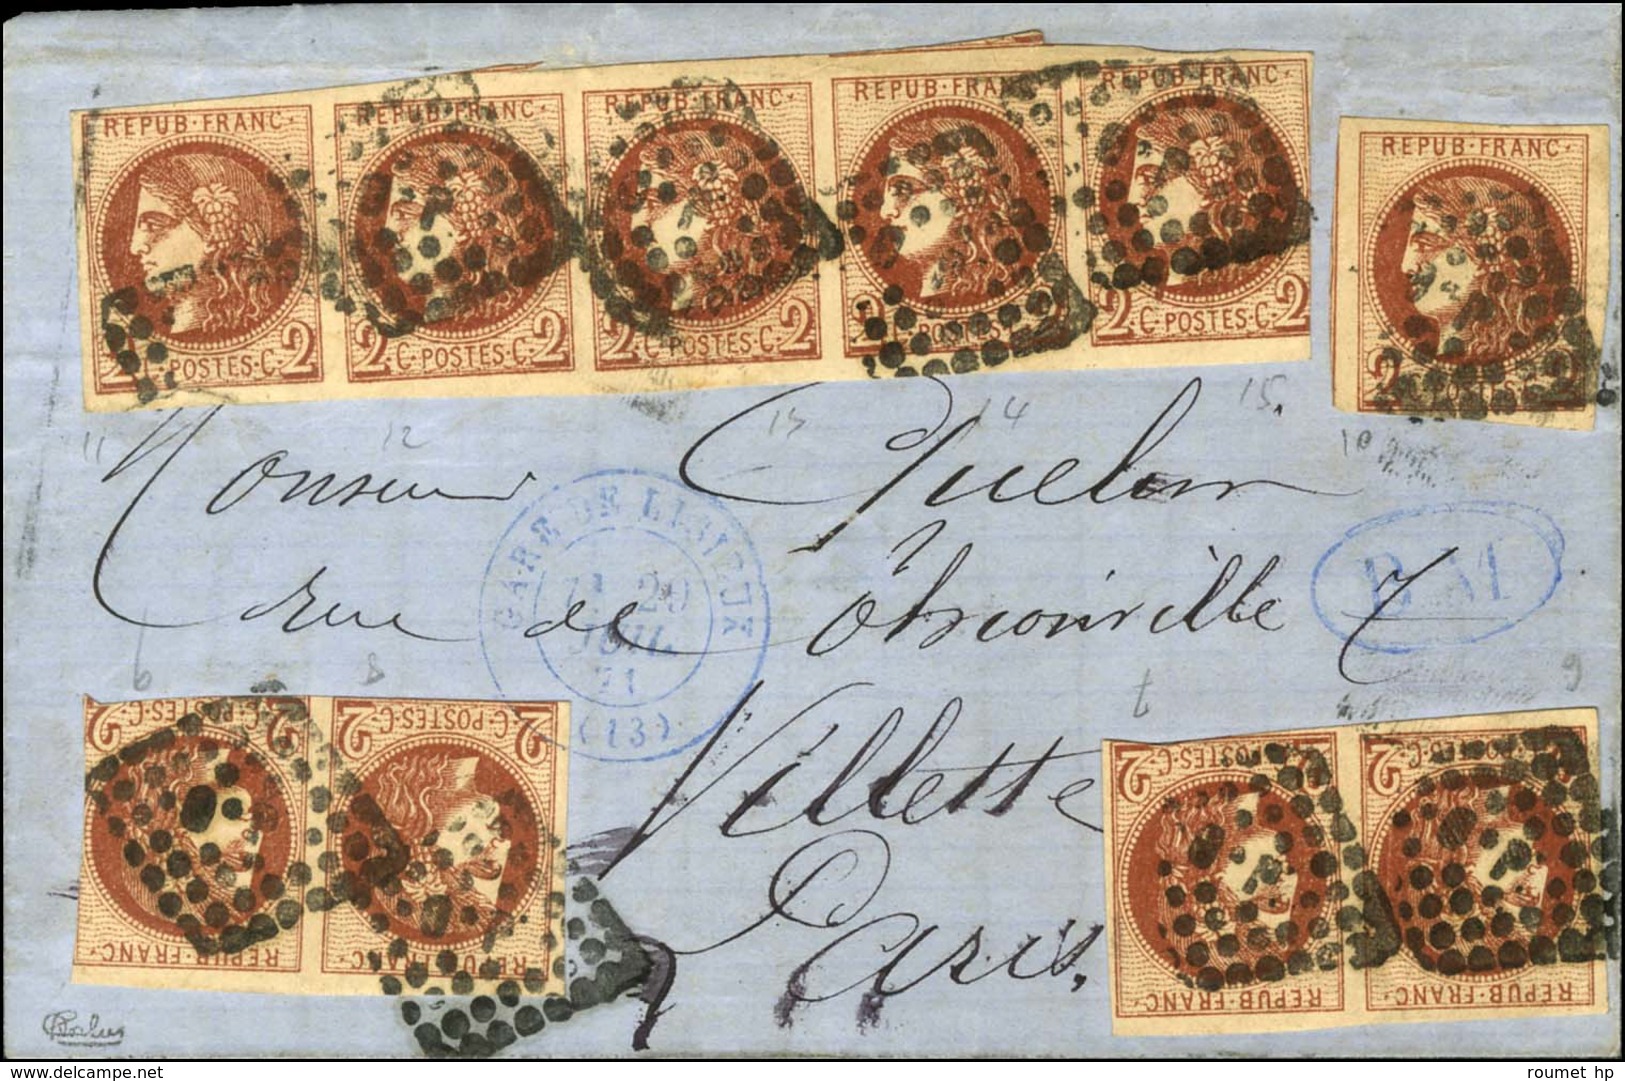 REPUB·FRANC· REPUB·FRANC· REPUB·FRANC· REPUB·FRANC REPUB·FRANC·
REPUB·FRANC·
2 C·POSTES·C·2 2 C·POSTES·C·2 2 C·POSTES·C·2 2 POSTES 2 2 C·POSTES·C·2
2 2
11 12 13 14 15. 10
Monsieur Quelin
GARE DE LISIEUX
20
JUIL.
71
(13)
rue de 7
BM
6 8 7 9
Villette
Paris.
2 C·POSTES·C·2
REPUB·FRANC·
REPUB·FRANC·
2 POSTES·C·
REPUB·FRANC·
REPUB·FRANC·
www.delcampe.net
roumet hp